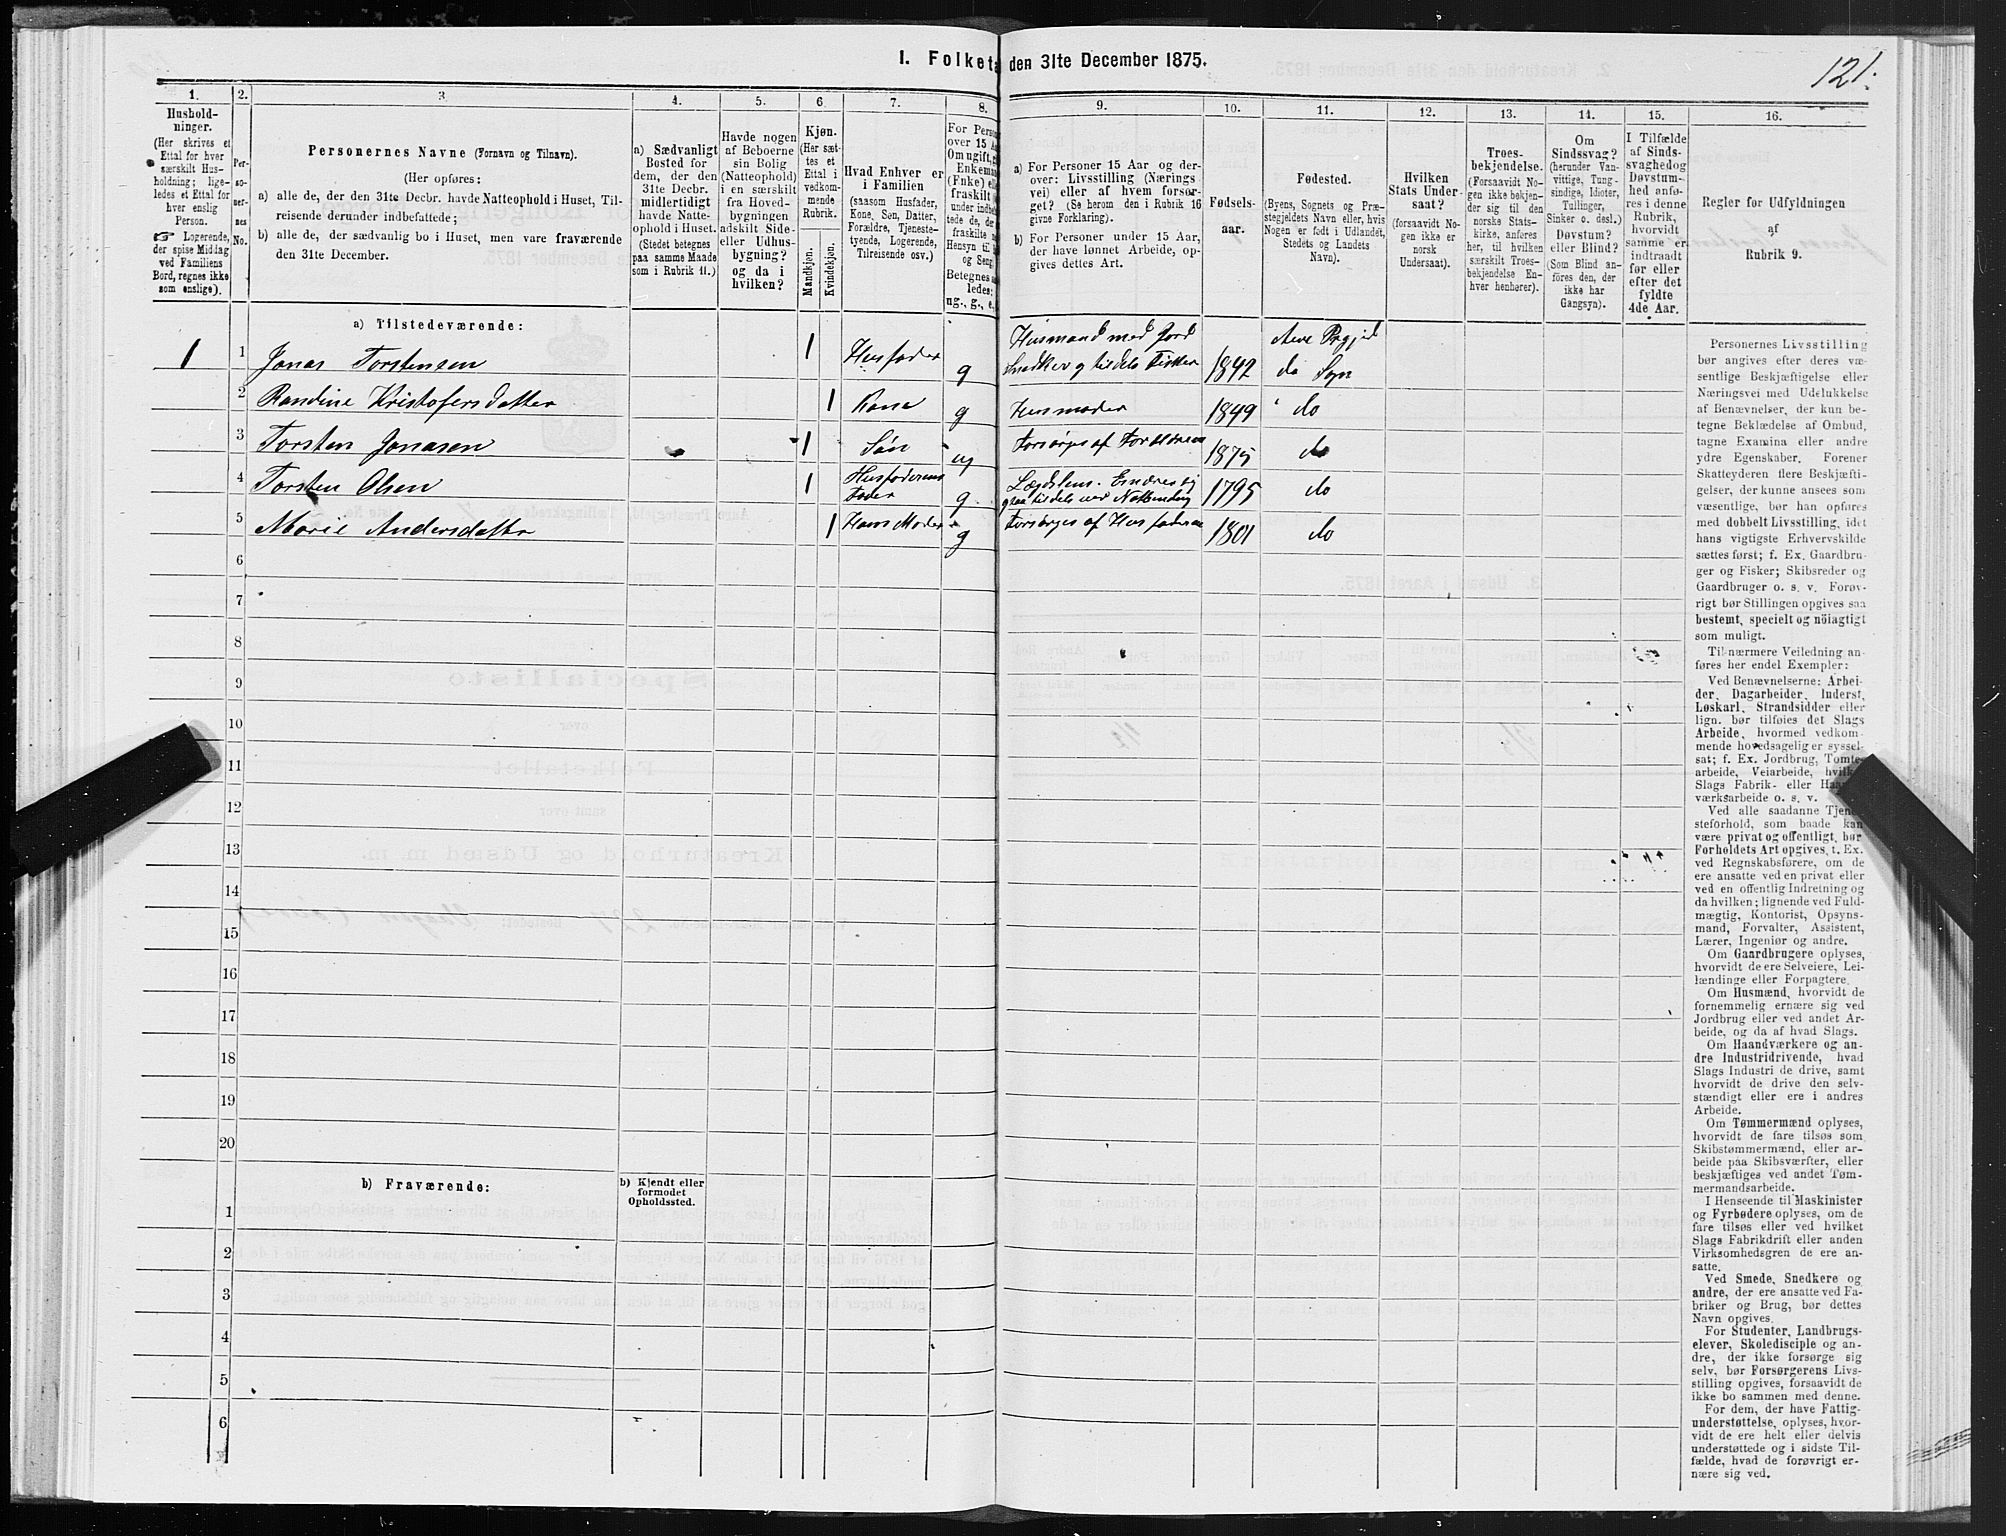 I. Folketa den 31te December 1875.
121.
1.
Hushold-
ninger.
(Her skrives et
Ettal for hver
særskilt Hus-
holdning; lige-
ledes et Ettal for
hver enslig
Person.
☞ Logerende,
der spise Middag
ved Familiens
Bord, regnes ikke
som enslige).
2.
Per-
so-
ner-
nes
No.
3
Personernes Navne (Fornavn og Tilnavn).
(Her opføres:
a) alle de, der den 31te Decbr. havde Natteophold i Huset, Til-
reisende derunder indbefattede;
b) alle de, der sædvanlig bo i Huset, men vare fraværende
den 31te December.
4.
a) Sædvanligt
Bosted for
dem, der den
31te Decbr.
midlertidigt
havde Natte-
ophold i Huset.
(Stedet betegnes
paa samme Maade
som i Rubrik 11.)
5.
Havde nogen
af Beboerne
sin Bolig
(Natteophold)
i en særskilt
fra Hoved-
bygningen
adskilt Side-
eller Udhus-
bygning?
og da i
hvilken?
6.
Kjøn.
(Her sæt-
tes et
Ettal i
vedkom-
mende
Rubrik.
Mandkjøn.
Kvindekjøn.
7.
Hvad Enhver er
i Familien
(saasom Husfader,
Kone, Søn, Datter,
Forældre, Tjeneste-
tyende, Logerende,
Tilreisende osv.)
8.
For Perso
over 15 A
Om ugift, g
Enkema
(Enke) el
fraskilt
under indbe
tede de, de
fraskilte
Hensyn til
og Seng
Betegnes s
ledes:
ug., g., e.
9.
a) For Personer 15 Aar og der-
over: Livsstilling (Nærings
vei) eller af hvem forsør-
get? (Se herom den i Rubrik 16
givne Forklaring).
b) For Personer under 15 Aar,
der have lønnet Arbeide, op-
gives dettes Art.
10.
Fødsels-
aar.
11.
Fødested.
(Byens, Sognets og Præ-
stegjeldets Navn eller, hvis
Nogen er født i Udlandet,
Stedets og Landets
Navn).
12.
Hvilken
Stats Under-
saat?
(forsaavidt No-
gen ikke er
norsk
Undersaat).
13.
Troes-
bekjendelse.
(Forsaavidt No-
gen ikke bekjen-
der sig til den
norske Stats-
kirke, anføres
her, til hvilken
særskilt Troes-
bekjendelse En-
hver henhører).
14.
Om
Sindssvag?
(herunder Van-
vittige, Tung-
sindige, Idioter,
Tullinger,
Sinker o. desl.)
Døvstum?
eller Blind?
(Som Blind an-
føres den, der
ikke har
Gangsyn).
15.
I Tilfælde
af Sinds-
svaghed og
Døvstum-
hed anfø-
res i denne
Rubrik,
hvorvidt
samme er
indtraadt
før eller
efter det
fyldte
4de Aar.
16.
Regler for Udfyldningen
af
Rubrik 9.
a) Tilstedeværende:
1 1 Jonas Torstensen 1 Husfader g Husmand med Jord
Snedker og tildels Fisker 1842 Aure Prgjed
do Sogn
2 Randine Kristofersdatter 1 Kone g Husmoder 1849 do
3 Torsten Jonasen 1 Søn ug forsørges af Forældrene 1875 do
4 Torsten Olsen 1 Husfaderens
Fader g Lægdslem. Ernærer sig
1795 do
5 Marie Andersdatter 1 Hans Moder g forsørges af Husfaderen 1801 do
6
7
8
9
10
11
12
13
14
15
16
17
18
19
20
b) Fraværende:
b) Kjendt eller
formodet
Opholdssted.
1
2
3
4
5
6
Personernes Livsstilling
bør angives efter deres væ-
sentlige Beskjæftigelse eller
Næringsvei med Udelukkelse
af Benævnelser, der kun be-
tegne Beklædelse af Ombud,
tagne Examina eller andre
ydre Egenskaber. Forener
Skatteyderen flere Beskjæfti-
gelser, der kunne ansees som
væsentlige, bør han opføres
med dobbelt Livsstilling, idet
hans vigtigste Erhvervskilde
sættes først; f. Ex. Gaardbru-
ger og Fisker; Skibsreder og
Gaardbruger o. s. v. Forøv-
rigt bør Stillingen opgives saa
bestemt, specielt og nöiagtigt
som muligt.
Til nærmere Veiledning an-
føres her endel Exempler:
Ved Benævnelserne: Arbei-
der, Dagarbeider, Inderst,
Løskarl, Strandsidder eller
lign. bør tilføies det Slags
Arbeide, hvormed vedkom-
mende hovedsagelig er syssel-
sat; f. Ex. Jordbrug, Tomte-
arbeide, Veiarbeide, hvilke
Slags Fabrik- eller Haand-
værksarbeide o. s. v.
Ved alle saadanne Tjene-
steforhold, som baade kan
være privat og offentligt, bør
Forholdets Art opgives, t. Ex.
ved Regnskabsførere, om de
ere ansatte ved en privat eller
ved en offentlig Indretning og
da hvilken; lignende ved Fuld-
mægtig, Kontorist, Opsyns-
mand, Forvalter, Assistent,
Lærer, Ingeniør og andre.
Om Gaardbrugere oplyses,
hvorvidt de ere Selveiere, Lei-
lændinge eller Forpagtere.
Om Husmænd, hvorvidt de
fornemmelig ernære sig ved
Jordbrug eller ved andet Ar-
beide, og da af hvad Slags.
Om Haandværkere og an-
dre Industridrivende, hvad
Slags Industri de drive, samt
hvorvidt de drive den selv-
stændigt eller ere i andres
Arbeide.
Om Tømmermænd oplyses,
hvorvidt de fare tilsøs som
Skibstømmermænd, eller ar-
beide paa Skibsværfter, eller
beskjæftiges ved andet Tøm-
mermandsarbeide.
I Henseende til Maskinister
og Fyrbødere oplyses, om de
fare tilsøs eller ved hvilket
Slags Fabrikdrift eller anden
Virksomhedsgren de ere an-
satte.
Ved Smede, Snedkere og
andre, der ere ansatte ved Fa-
briker og Brug, bør dettes
Navn opgives.
For Studenter, Landbrugs-
elever, Skoledisciple og an-
dre, der ikke forsørge sig
selv, bør Forsørgerens Livs-
stilling opgives, forsaavidt de
ikke bo sammen med denne.
For dem, der have Fattig-
understøttelse, oplyses, hvor-
vidt de ere helt eller delvis
understøttede og i sidste Til-
fælde, hvad de forøvrigt er-
nære sig ved.